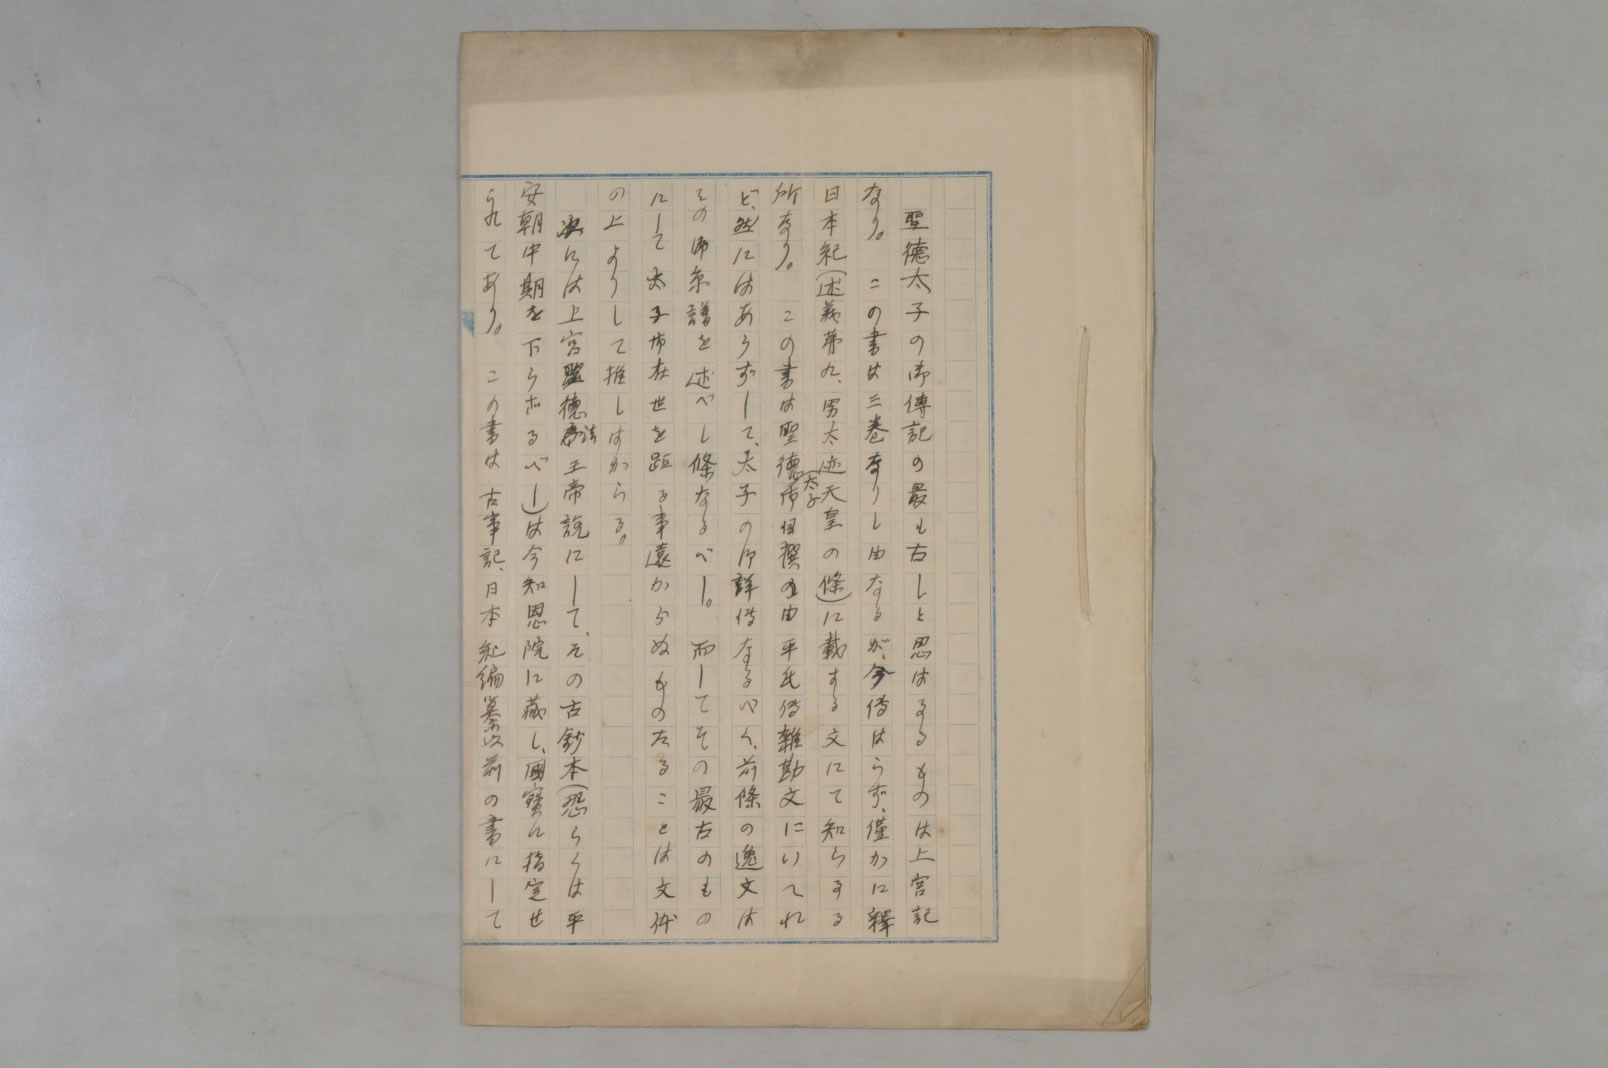 聖徳太子の御傳記の最も古しと思はるるものは上宮記
なり。この書は三巻なりし由なるが、今傳はらず、僅かに釋
日本紀（述義第九、男太迹天皇の條）に載する文にて知らるる
所なり。この書は聖徳太子御自撰の由平氏傳雜勘文にいへれ
ど、然にはあらずして、太子の御詳傳なるべく、前條の逸文は
その御系譜を述べし條なるべし。而してその最古のもの
にして太子御在世を距る事遠からぬものたることは文体
の上よりして推しはからる。
次には上宮聖徳法王帝説にして、その古鈔本（恐らくは平
安朝中期を下らざるべし）は今知恩院に藏し、國寶に指定せ
られてあり。この書は古事記、日本紀編纂以前の書にして